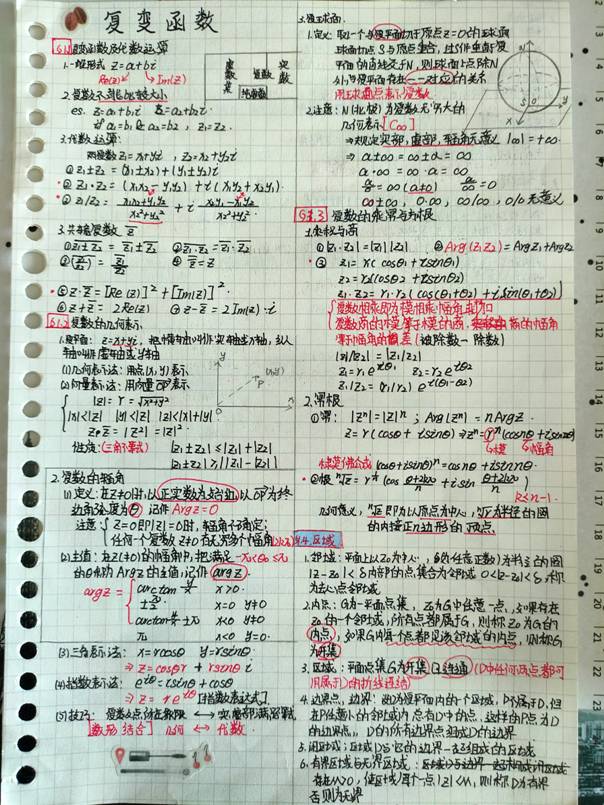 复变函数
§1.1 复数及代数运算
1.一般形式 z=a+bi
Re(z) Im(z)
复数 实数
虚数
纯虚数
2.复数不能比较大小
z₁=a₁+b₁i z₂=a₂+b₂i
if a₁=b₁ & a₂=b₂, z₁=z₂.
3.代数运算:
两复数 z₁=x₁+y₁i, z₂=x₂+y₂i
① z₁±z₂=(x₁±x₂)+(y₁±y₂)i
② z₁·z₂=(x₁x₂-y₁y₂)+i(x₁y₂+x₂y₁)
③ z₁/z₂= (x₁x₂+y₁y₂)/(x₂²+y₂²) + i (x₂y₁-x₁y₂)/(x₂²+y₂²)
3.共轭复数 z̄
⑤ z·z̄=[Re(z)]²+[Im(z)]²
⑥ z+z̄=2Re(z) ⑦ z-z̄=2Im(z)·i
§1.2 复数的几何表示
(1)几何表示法:用点(x,y)表示
(2)向量表示法:用向量OP表示
|z|=r=√x²+y²
|x|<|z| |y|<|z| |z|<|x|+|y|
性质:(三角不等式) |z₁±z₂|≤|z₁|+|z₂|
|z₁±z₂|≥||z₁|-|z₂||
y
(x,y)
P
O
x
2.复数的辐角
(1)定义:在z≠0时,以正实数为始边,以OP为终
边角弧度为θ 记作Argz
注意:z=0即|z|=0时,辐角不确定;
任何一个复数z≠0有无穷多个辐角
(2)主值:在z(≠0)的辐角中,把满足-π<θ₀≤π
的θ₀称为Argz的主值,记作argz.
argz= arctan y/x x>0.
±π/2 x=0 y≠0
arctan y/x ±π x<0 y≠0
π x<0 y=0.
(3)三角表示法: x=rcosθ y=rsinθ
⇒ z=cosθr+rsinθi
(4)指数表示法: e^{iθ}=isinθ+cosθ
⇒ z=re^{iθ} [指数表达式]
[数形结合] 几何 ↔ 代数.
3.复球面:
1.定义:取一个与复平面切于原点z=0的球面
球面上点S与原点重合,过S作垂直于复
平面的直线交于N,则球面上点除N
外与复平面存在一一对应的关系
用球面点表示复数
2.注意:N(北极)为复数无穷大的
几何表示[C∞]
⇒规定实部,虚部,辐角无意义 |∞|=+∞
⇒ a±∞=∞±a=∞
a·∞=∞·a=∞
a/0=∞(a≠0) a/∞=0
∞±∞, 0·∞, ∞/∞, 0/0无意义
N
S
O
x
y
§1.3 复数的乘幂与方根
1.乘积与商
① |z₁·z₂|=|z₁||z₂| ② Arg(z₁z₂)=Argz₁+Argz₂
③ z₁=r₁(cosθ₁+isinθ₁)
z₂=r₂(cosθ₂+isinθ₂)
z₁·z₂=r₁·r₂(cos(θ₁+θ₂)+isin(θ₁+θ₂))
复数相乘即为模相乘,辐角相加
复数商的模等于模的商,商的辐角
等于辐角的差(被除数-除数)
|z₁|/|z₂|=|z₁/z₂|
z₁=r₁e^{iθ₁} z₂=r₂e^{iθ₂}
z₁/z₂=(r₁/r₂)e^{i(θ₁-θ₂)}
2.幂根
①幂: |zⁿ|=|z|ⁿ; Arg(zⁿ)=nArgz.
z=r(cosθ+isinθ)⇒zⁿ=rⁿ(cosnθ+isinnθ)
模 辐角
棣莫佛公式(cosθ+isinθ)ⁿ=cosnθ+isinnθ
②根 ⁿ√z=r^{1/n}(cos (θ+2kπ)/n + isin (θ+2kπ)/n)
k≤n-1.
几何意义,ⁿ√z即为以原点为中心,ⁿ√r为半径的圆
的内接正n边形的顶点
§1.4 区域
1.邻域:平面上以z₀为中心,δ(为任意正数)为半径的圆
|z-z₀|<δ内部的点,集合为邻域 0<|z-z₀|<δ,称
为去心点邻域
2.内点:G为一平面点集,z₀为G中任意一点,如果存在
z₀的一个邻域,所有点都属于G,则称z₀为G的
内点,如果G内每个点都是该邻域的内点,则称G
为开集
3.区域:平面点集G为开集且连通(D中任何两点都可
用属于D的折线连结)
4.边界点,边界:设D为复平面内的一个区域,P不属于D,但
在P任意小的邻域内总有D中的点,这样的P点为D
的边界点,D的所有边界点组成D的边界
5.闭区域:区域D与它的边界一起组成的区域
6.有界区域与无界区域:
存在M>0,使区域D每个点|z|<M,则称D为有界
否则为无界